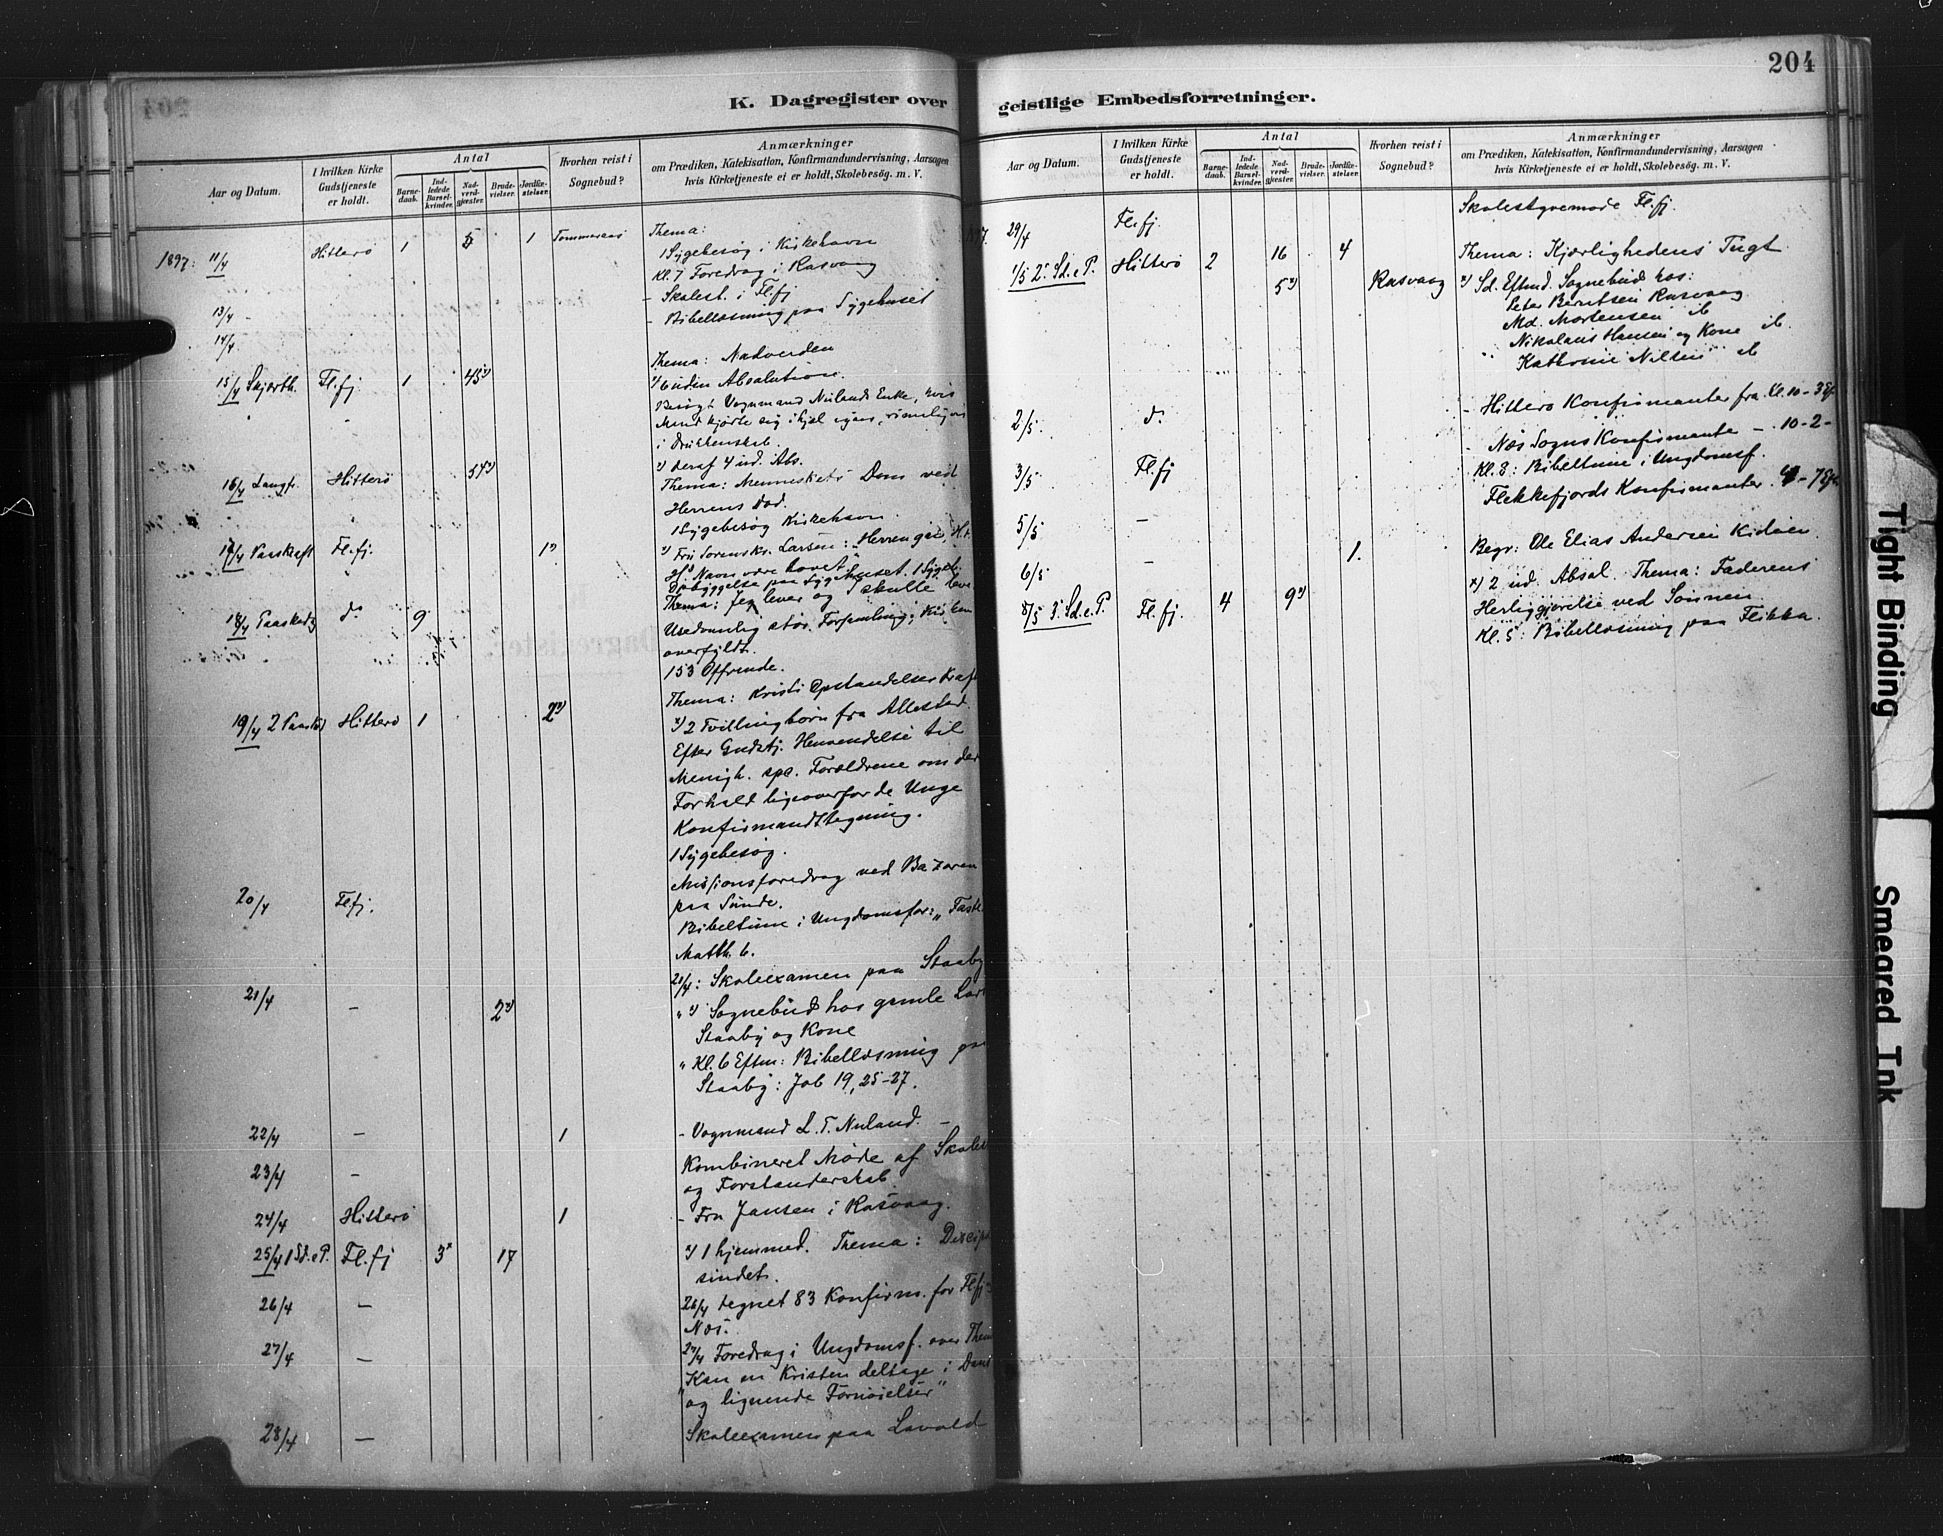 204
K. Dagregister over geistlige Embedsforretninger.
Aar og Datum.
I hvilken Kirke Gudstjeneste er holdt.
Antal
Barne-daab.
Ind-ledede Barsel-kvinder.
Nad-verd-gjæster.
Brude-vielser.
Jordfæ-stelser.
Hvorhen reist i Sognebud?
Anmærkninger
om Prædiken, Katekisation, Konfirmandundervisning, Aarsagen
hvis Kirketjeneste ei er holdt, Skolebesøg. m. V.
1897: 11/4 Hitterø 1 5 1 Tommeraas Thema:
1 Sygebesøg i Kirkehavn
Kl. 7 Foredrag i Rasvaag
13/4 - Skolest. i Fl.fj
14/4 - Bibellæsning paa Sygehuset
Thema: Nadverden
15/4 Skjærth. Fl.fj. 1 45 x) 6 uden Absolution.
Besøgt Vognmand Nulands Enke, hvis
Mand kjørte sig ihjel igaar, rimeligvis
i Drukkenskab.
x) deraf 4 ud. Abs.
16/4 Langfr. Hitterø 54 Thema: Menneskets Dom ved
Herrens Død.
1 Sygebesøg Kirkehavn.
17/4 Paaskeaft Fl.fj. 1 x) Fru Sorenskr. Larsen: "Herren gav, H. t.
H's Navn være lovet"
Opbyggelse paa Sygehuset. 1 Sygeb.
18/4 Paaskedg do 9 Thema: Jeg lever og I skulle leve
Usedvanlig stor Forsamling; Kirken
overfyldt.
153 Offrende.
Thema: Kristi Opstandelses Kraft
19/4 2 Paaskd Hitterø 1 2 x) 2 Tvillingbørn fra Allestad
Efter Gudstj. Henvendelse til
Menigh. spec. Forældrene om deres
Forhold ligeoverfor de Unge
Konfirmandtegning.
1 Sygebesøg.
20/4 Fl.fj. Missionsforedrag ved Bazaren
paa Sunde.
Bibeltime i Ungdomsfor: "Faste
Matth. 6.
21/4 - 2 21/4: Skoleexamen paa Staaby
" x) Sognebud hos gamle Lars
Staaby og Kone
" Kl. 6 Eftm: Bibellæsning paa
Staaby: Job 19, 25-27.
22/4 - 1 - Vognmand L. T. Nuland. -
23/4 - Kombineret Møde af Skolest
og Forstanderskab
24/4 Hitterø 1 - Fru Jansen i Rasvaag.
25/4 1 Sd. e P. Fl.fj 3x 17 x) 1 hjemmed. Thema: Discipel-
sindet.
26/4 - 26/4 tegnet 83 Konfirm. for Flfj-
Næs.
27/4 - 27/4 Foredrag i Ungdomsf. over Thema
"Kan en Kristen deltage i Dans
og lignende Fornøielser"
28/4 - Skoleexamen paa Lavold
204
Aar og Datum.
I hvilken Kirke Gudstjeneste er holdt.
Antal
Barne-daab.
Ind-ledede Barsel-kvinder.
Nad-verd-gjæster.
Brude-vielser.
Jordfæ-stelser.
Hvorhen reist i Sognebud?
Anmærkninger
om Prædiken, Katekisation, Konfirmandundervisning, Aarsagen
hvis Kirketjeneste ei er holdt, Skolebesøg. m. V.
1897. 29/4 Fl.fj. Skolestyremøde Fl.fj.
1/5 2. Sd. e P. Hitterø 2 16 4 Thema: Kjærlighedens Tugt
5x) Rasvaag x) Sd. Eftmd. Sognebud hos:
Peter Berntsen Rasvaag
Md. Mortensen ib
Nikolaus Hansen og Kone ib.
" Kathrine Nilsen ib
2/5 do - Hitterø Konfirmanter fra Kl. 10-3 Ef.
Næs Sogns Konfirmante - 10-2-
3/5 Fl.fj Kl. 8: Bibeltime i Ungdomsf.
Flekkefjords Konfirmanter 4-7 Ef.
5/5 - 1. Begr: Ole Elias Andersen
6/5 - x) 2 ud. Absol. Thema: Faderens
8/5 3. Sd. e P. Fl.fj. 4 9x) Herliggjørelse ved Sønnen
Kl. 5: Bibellæsning paa Flikka.
Tight Binding
Smeared Ink